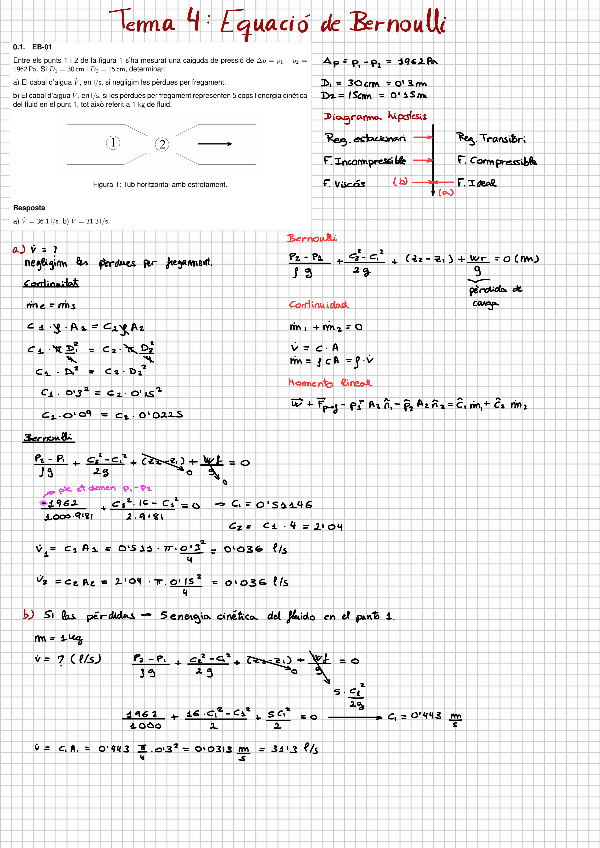 Tema 4: Equació de Bernoulli
0.1. EB-01
Entre els punts 1 i 2 de la figura 1 s'ha mesurat una caiguda de pressió de Δp = p₁ − p₂ =
1962 Pa. Si D₁ = 30 cm i D₂ = 15 cm, determinar:
a) El cabal d'aigua V̇, en l/s, si negligim les pèrdues per fregament.
b) El cabal d'aigua V̇, en l/s, si les pèrdues per fregament representen 5 cops l'energia cinètica
del fluid en el punt 1, tot això referit a 1 kg de fluid.
1
2
Figura 1: Tub horitzontal amb estretament.
Resposta
a) V̇ = 36.1 l/s. b) V̇ = 31.3 l/s.
Δp = p₁ - p₂ = 1962 Pa
D₁ = 30 cm = 0'3 m
D₂ = 15 cm = 0'15 m
Diagrama hipotesis
Reg. estacionari Reg. Transitri
F. Incompressible F. Compressible
F. Viscós (b) F. Ideal
(a)
a) V̇ = ?
negligim les pèrdues per fregament.
Continuitat
ṁe = ṁs
C₁ · ρ · A₁ = C₂ ρ A₂
C₁ · π D₁²/4 = C₂ · π D₂²/4
C₁ · D₁² = C₂ · D₂²
C₁ · 0'3² = C₂ · 0'15²
C₁ · 0'09 = C₂ · 0'0225
Bernoulli
(P₂ - P₁)/ρg + (C₂² - C₁²)/2g + (z₂ - z₁) + wr/g = 0 (m)
pérdida de
carga
Continuidad
ṁ₁ + ṁ₂ = 0
V̇ = C · A
ṁ = ρ C A = ρ · V̇
Momento lineal
W + Fp-f - p₁ A₂ n̂₁ - p₂ A₂ n̂₂ = C₁ ṁ₁ + C₂ ṁ₂
Bernoulli
(P₂ - P₁)/ρg + (C₂² - C₁²)/2g + (z₂ - z₁) 0 + wf/g 0 = 0
plc et donen p₁ - p₂
-1962/1000·9'81 + (C₁² · 16 - C₁²)/2·9'81 = 0 → C₁ = 0'51146
C₂ = C₁ · 4 = 2'04
V̇₁ = C₁ A₁ = 0'511 · π · 0'3²/4 = 0'036 l/s
V̇₂ = C₂ A₂ = 2'04 · π · 0'15²/4 = 0'036 l/s
b) Si las pérdidas → 5 energia cinética del fluido en el punto 1.
m = 1 kg
V̇ = ? (l/s) (P₂ - P₁)/ρg + (C₂² - C₁²)/2g + (z₂ - z₁) 0 + wf/g = 0
5 · C₁²/2g
1962/1000 + (16 · C₁² - C₁²)/2 + 5C₁²/2 = 0 → C₁ = 0'443 m/s
V̇ = C₁ A₁ = 0'443 π/4 · 0'3² = 0'0313 m/s = 31'3 l/s